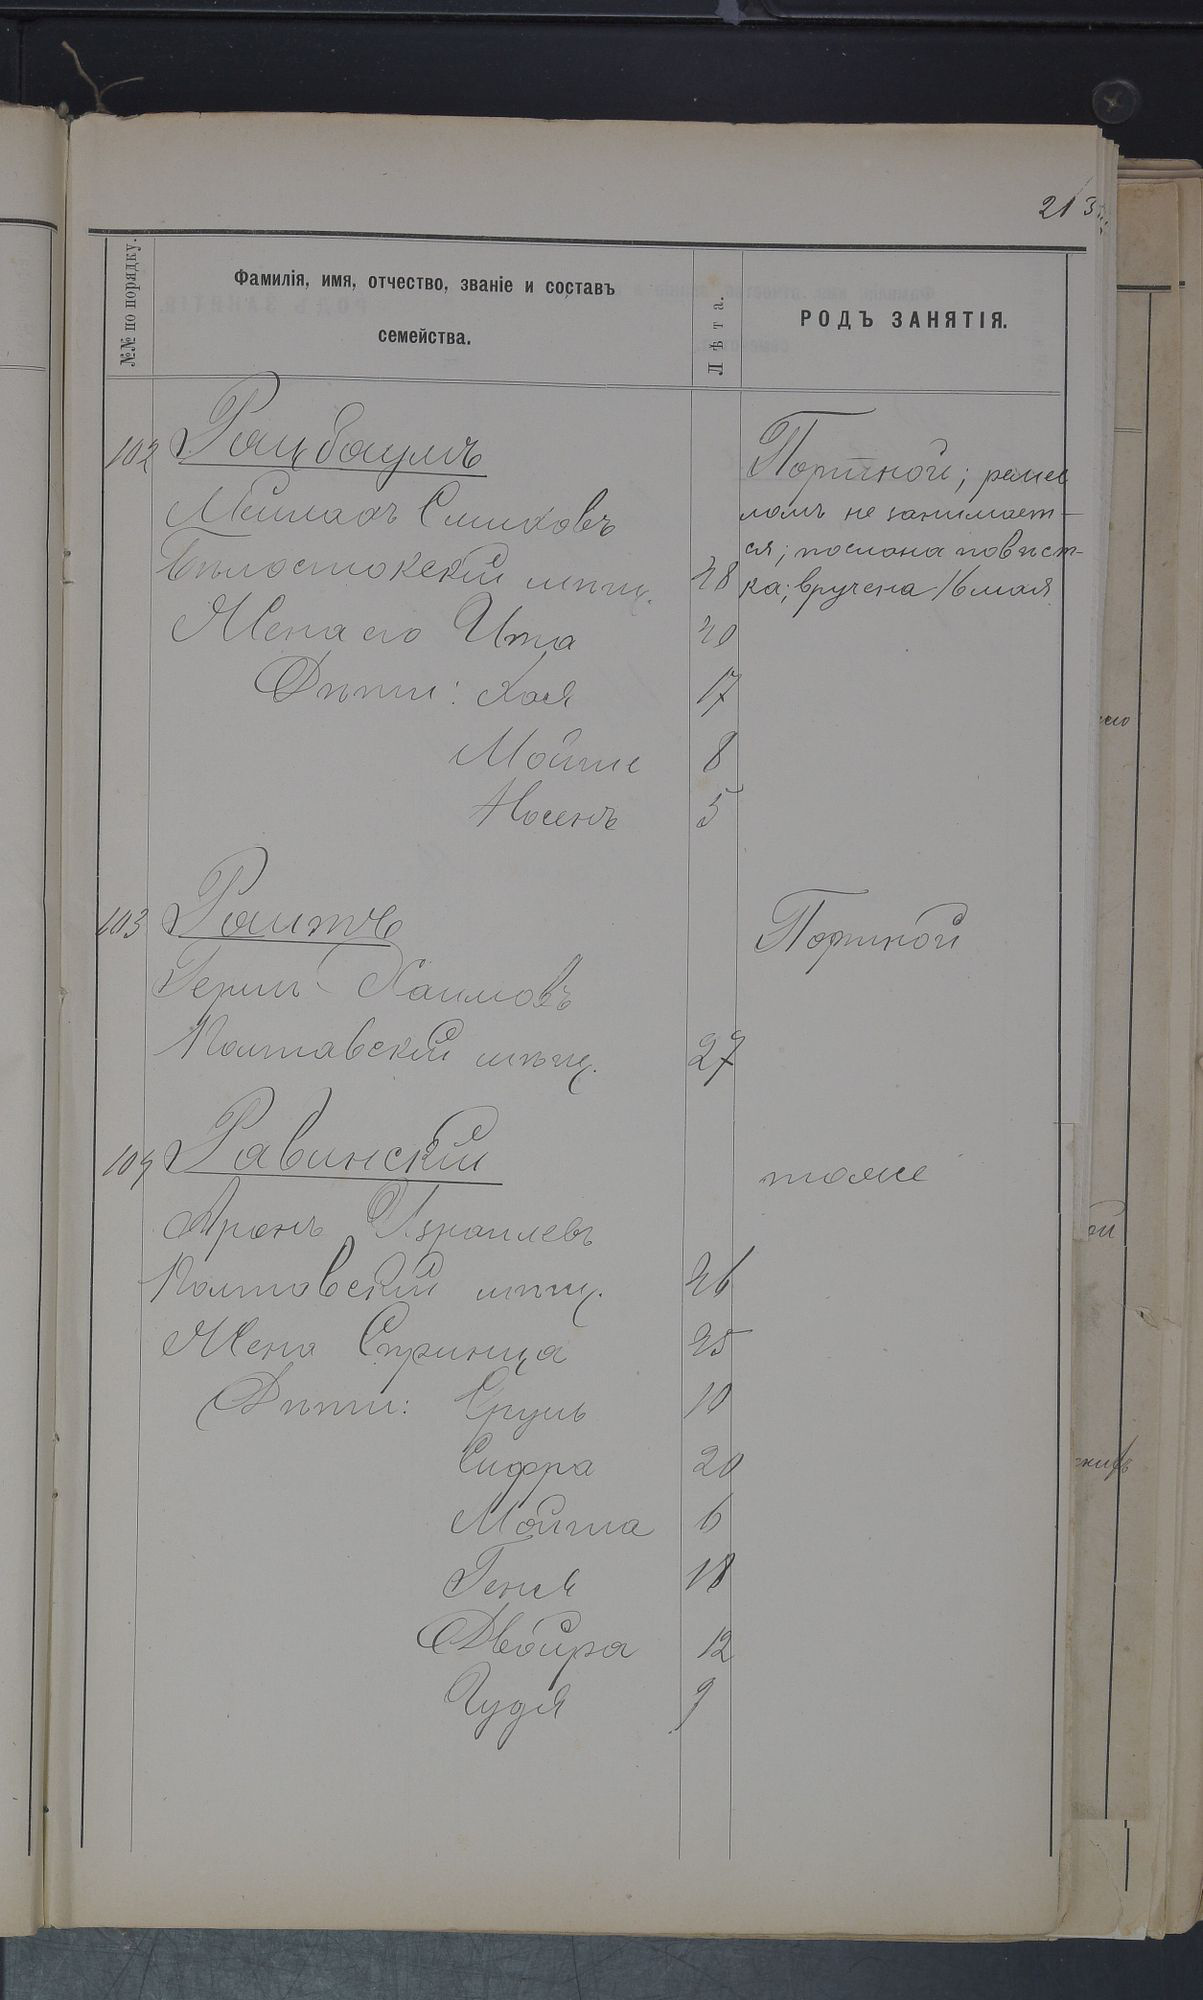 213
№№ по порядку.
Фамилія, имя, отчество, званіе и составъ
семейства.
Лѣта.
РОДЪ ЗАНЯТІЯ.
102 Рацбаумъ
Портной; ремес
Мейлахъ
ломъ не занимает-
ся; послана повѣст-
Бѣлостокскій мѣщ. 48
ка; вручена 16 мая
Жена его Ита 40
Дѣти: Хая 17
Мойше 8
Носенъ 5
103
Портной
Гершъ Хаимовъ
Полтавскій мѣщ. 27
104 Равинскій
тоже
Аронъ Израилевъ
Полтавскій мѣщ. 46
Жена Спринца 45
Дѣти: Сруль 10
Сифра 20
Мойша 6
Геня 18
Двойра 12
Гудя 9